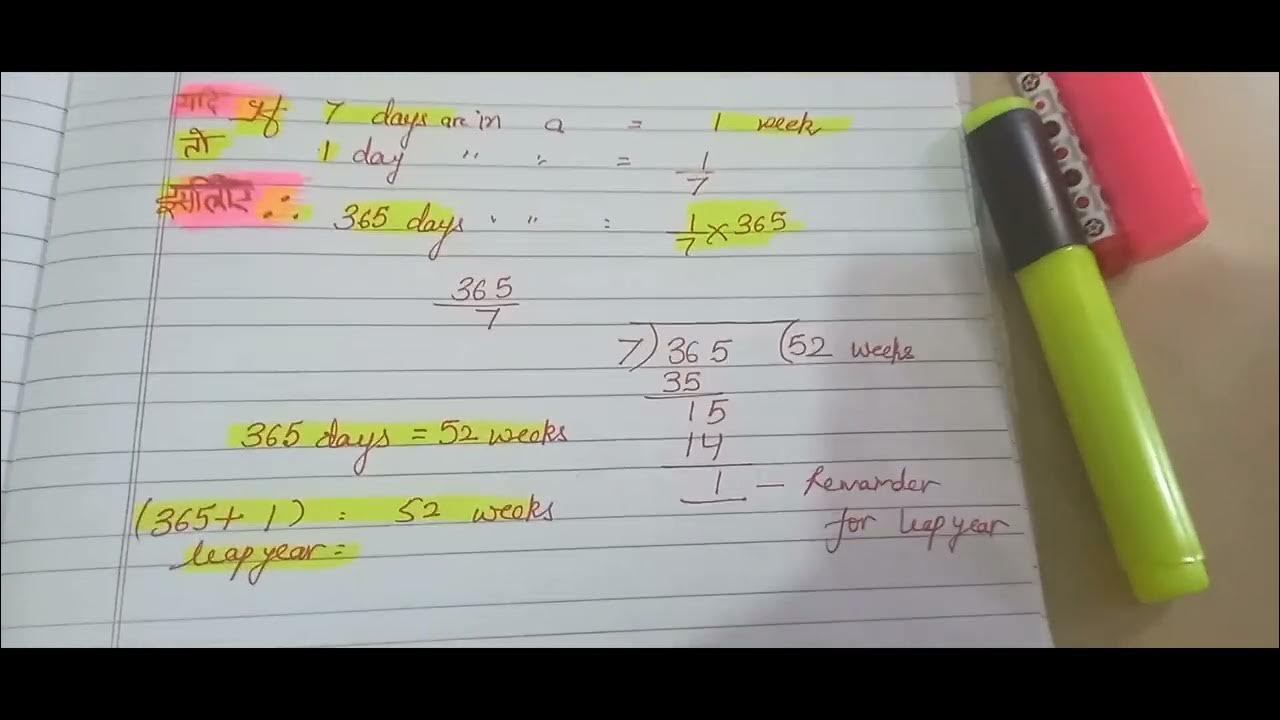 यदि If 7 days are in a = 1 week
तो 1 day " " = 1/7
इसलिए ∴ 365 days " " = 1/7 × 365
365/7
7) 365 (52 weeks
35
15
14
1 — Remainder
for leap year
365 days = 52 weeks
(365 + 1) = 52 weeks
leap year =